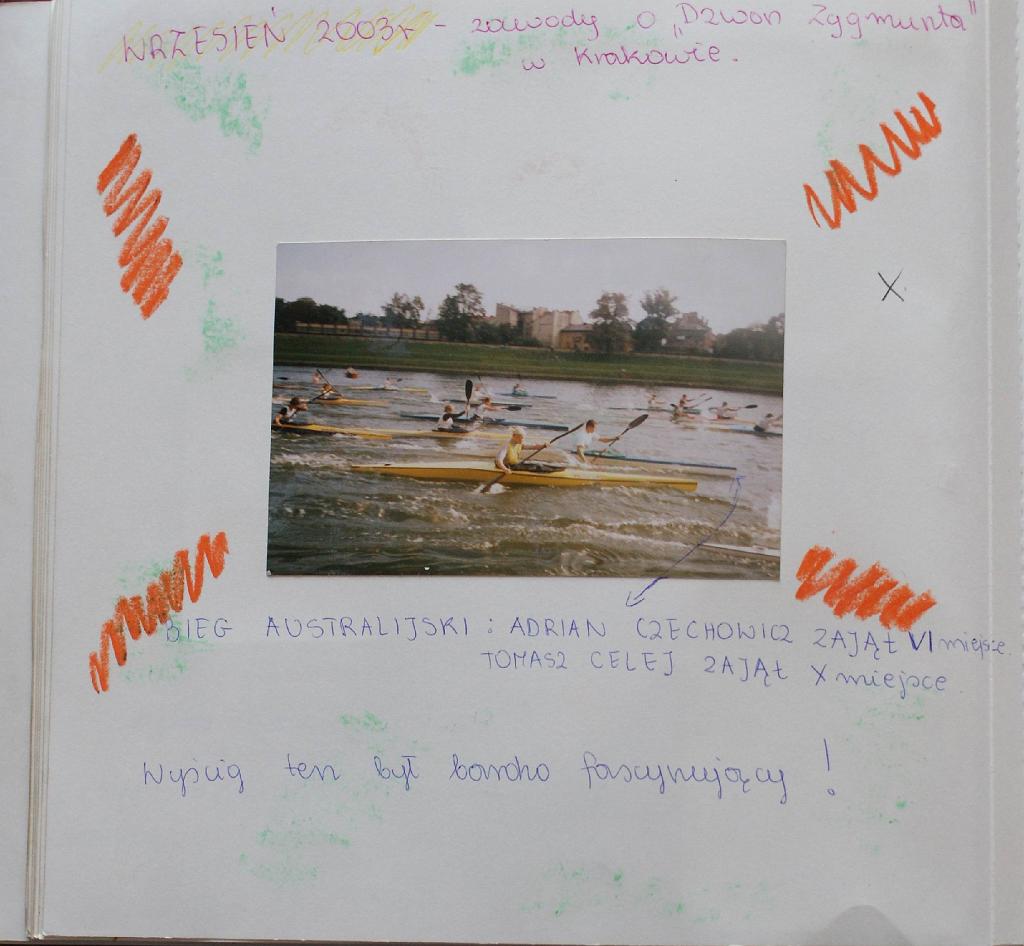 WRZESIEŃ 2003r - zawody o „Dzwon Zygmunta"
w Krakowie.
X
BIEG AUSTRALIJSKI : ADRIAN CZECHOWICZ ZAJĄŁ VI miejsce.
TOMASZ CELEJ ZAJĄŁ X miejsce.
Wyścig ten był bardzo fascynujący !